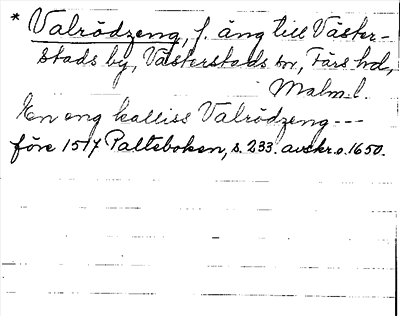 * Valrödzeng, f. äng till Väster-
stads by, Västerstads sn, Färs hd,
Malm. l.
En eng kalliss Valrödzeng ---
före 1517 Palteboken, s. 233. avskr. o. 1650.